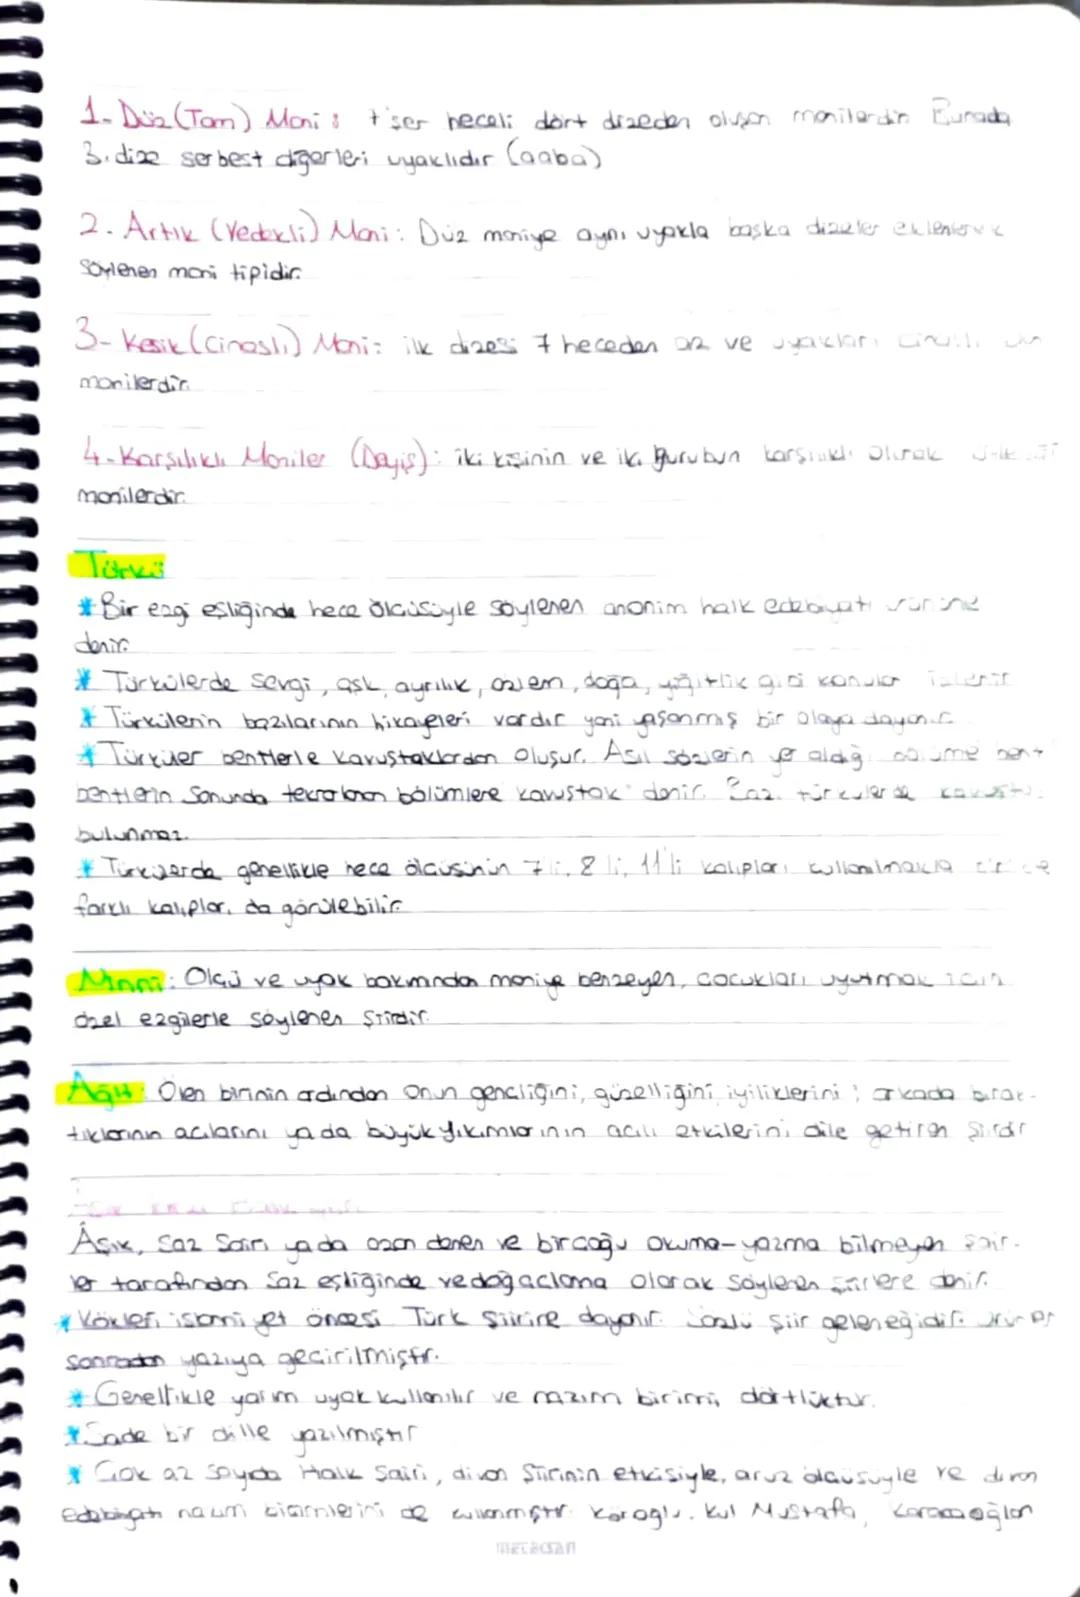 1- Düz (Tam) Mani: 7'şer heceli dört dizeden oluşan manilerdir Burada
3. dize serbest diğerleri uyaklıdır (aaba)
2- Artık (Yedekli) Mani: Düz maniye aynı uyakla başka dizeler eklenerek
söylenen mani tipidir.
3- Kesik (Cinaslı) Mani: ilk dizesi 7 heceden az ve uyakları cinaslı
manilerdir.
4- Karşılıklı Maniler (Deyiş): iki kişinin ve iki gurubun karşılıklı olarak
manilerdir.
Türkü
* Bir ezgi eşliğinde hece ölçüsüyle söylenen anonim halk edebiyatı ürününe
denir.
* Türkülerde sevgi, aşk, ayrılık, özlem, doğa, yiğitlik gibi konular işlenir
* Türkülerin bazılarının hikayeleri vardır yani yaşanmış bir olaya dayanır.
* Türküler bentlerle kavuştaklardan oluşur. Asıl sözlerin yer aldığı bölüme bent
bentlerin sonunda tekrarlanan bölümlere kavuştak denir. Bazı türkülerde kavuştak
bulunmaz.
* Türkülerde genellikle hece ölçüsünün 7'li, 8'li, 11'li kalıpları kullanılmakla birlikte
farklı kalıplar da görülebilir
Ninni: Ölçü ve uyak bakımından maniye benzeyen, çocukları uyutmak için
özel ezgilerle söylenen şiirdir.
Ağıt: Ölen birinin ardından onun gençliğini, güzelliğini iyiliklerini; arkada bırak-
tıklarının acılarını ya da büyük yıkımlarının acılı etkilerini dile getiren şiirdir
Âşık, saz şairi ya da ozan denen ve birçoğu okuma-yazma bilmeyen şair-
ler tarafından saz eşliğinde ve doğaçlama olarak söylenen şiirlere denir.
* Kökleri islamiyet öncesi Türk şiirine dayanır. Sözlü şiir geleneğidir. Ürünler
sonradan yazıya geçirilmiştir.
* Genellikle yarım uyak kullanılır ve nazım birimi dörtlüktür.
* Sade bir dille yazılmıştır
* Çok az sayıda Halk Şairi, divan şiirinin etkisiyle, aruz ölçüsüyle ve divan
edebiyatı nazım biçimlerini de kullanmıştır. Köroğlu, Kul Mustafa, Karacaoğlan